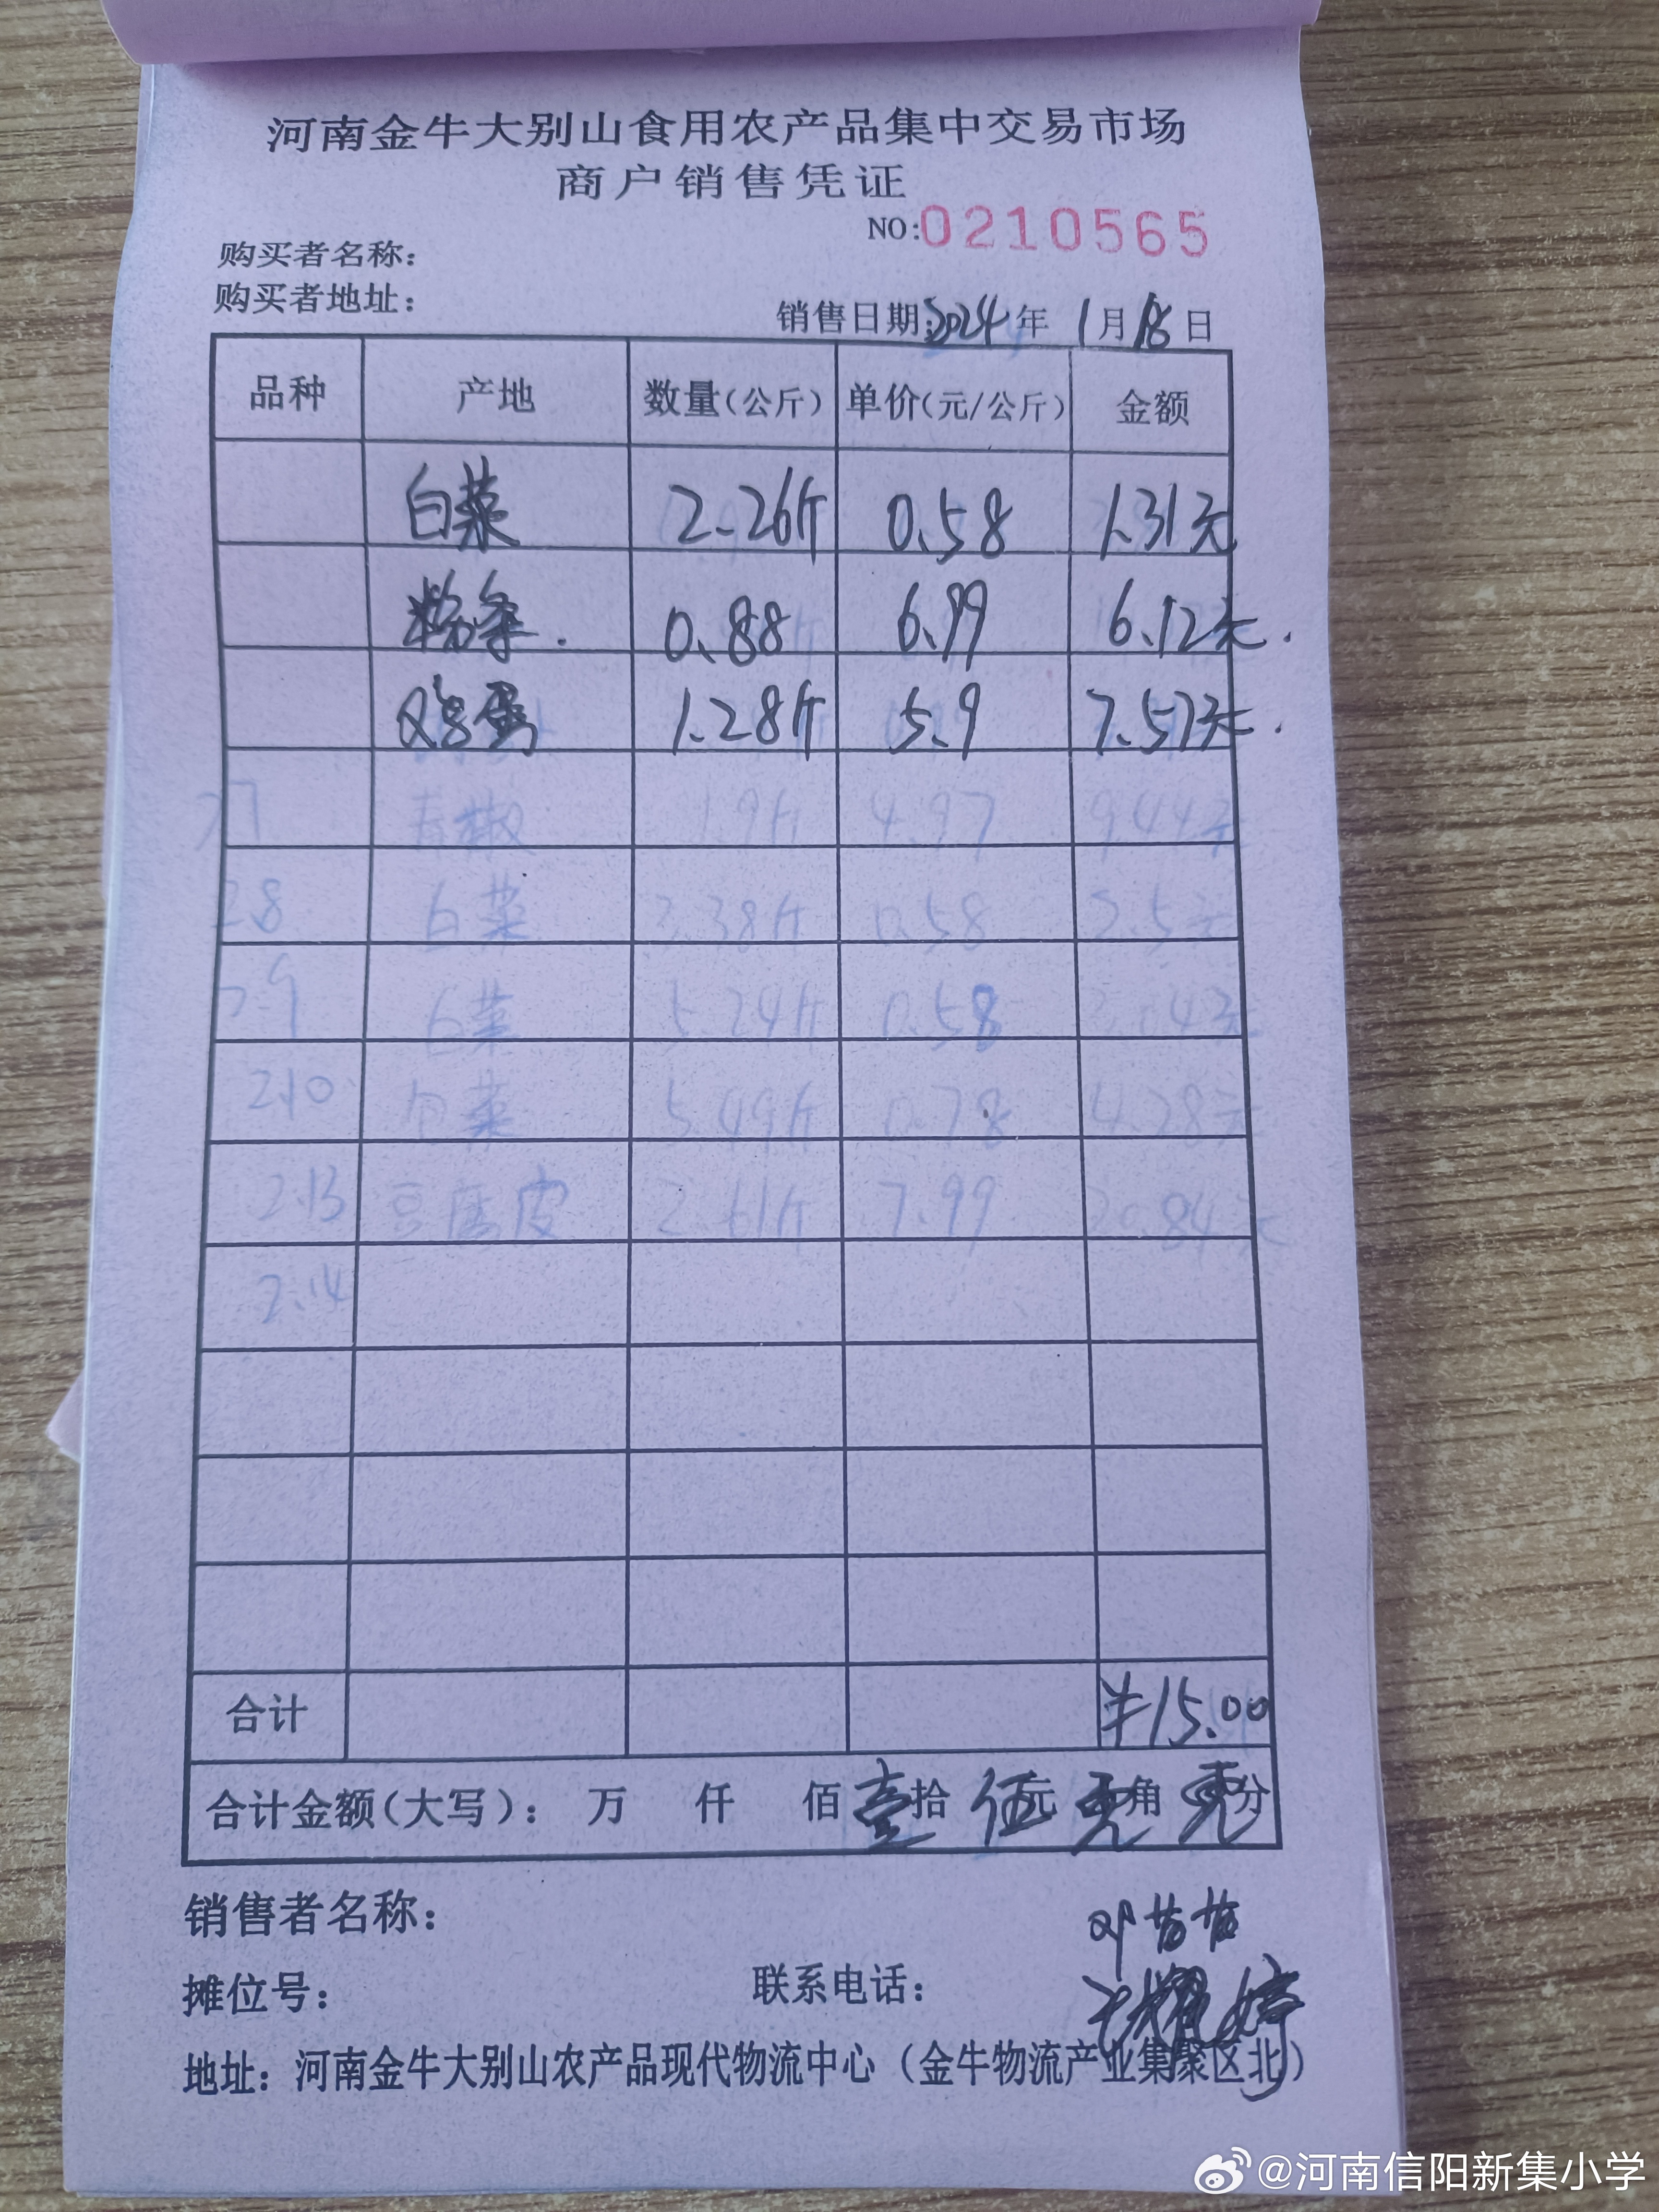 河南金牛大别山食用农产品集中交易市场
商户销售凭证
NO:0210565
购买者名称：
购买者地址：
销售日期：2024年 1月18日
品种 产地 数量(公斤) 单价(元/公斤) 金额
白菜 2.26斤 0.58 1.31元
粉条. 0.88 6.99 6.12元.
鸡蛋 1.28斤 5.9 7.57元.
27 青椒 1.9斤 4.97 9.44元
28 白菜 .38斤 0.58
29 白菜 5.24斤 0.58
2.10 白菜 5.49斤 0.78 4.28元
2.13 豆腐皮 2.61斤 7.99 20.84元
2.14
合计 ¥15.00
合计金额(大写)： 万 仟 佰壹拾伍元零角零分
销售者名称：
摊位号： 联系电话：
地址：河南金牛大别山农产品现代物流中心（金牛物流产业集聚区北）
@河南信阳新集小学